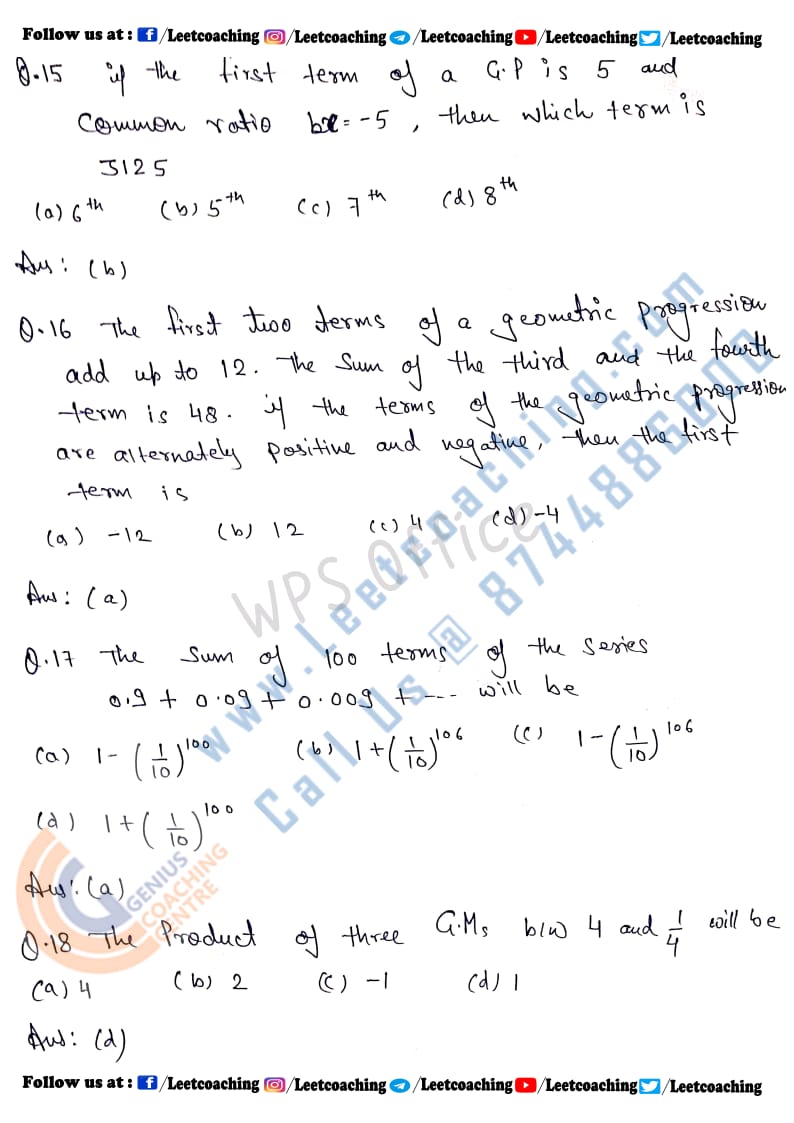 Follow us at : f/Leetcoaching /Leetcoaching /Leetcoaching /Leetcoaching /Leetcoaching
Q.15 if the first term of a G.P is 5 and
common ratio be = -5, then which term is
3125
(a) 6th (b) 5th (c) 7th (d) 8th
Ans: (b)
Q.16 The first two terms of a geometric progression
add up to 12. The sum of the third and the fourth
term is 48. if the terms of the geometric progression
are alternately positive and negative, then the first
term is
(a) -12 (b) 12 (c) 4 (d) -4
Ans: (a)
Q.17 The sum of 100 terms of the series
0.9 + 0.09 + 0.009 + --- will be
(a) 1 - (1/10)^100 (b) 1 + (1/10)^106 (c) 1 - (1/10)^106
(d) 1 + (1/10)^100
Ans: (a)
Q.18 The Product of three G.Ms b/w 4 and 1/4 will be
(a) 4 (b) 2 (c) -1 (d) 1
Ans: (d)
www.Leetcoaching.com
Call Us @ 8744886000
WPS Office
GENIUS
COACHING
CENTRE
Follow us at : f/Leetcoaching /Leetcoaching /Leetcoaching /Leetcoaching /Leetcoaching